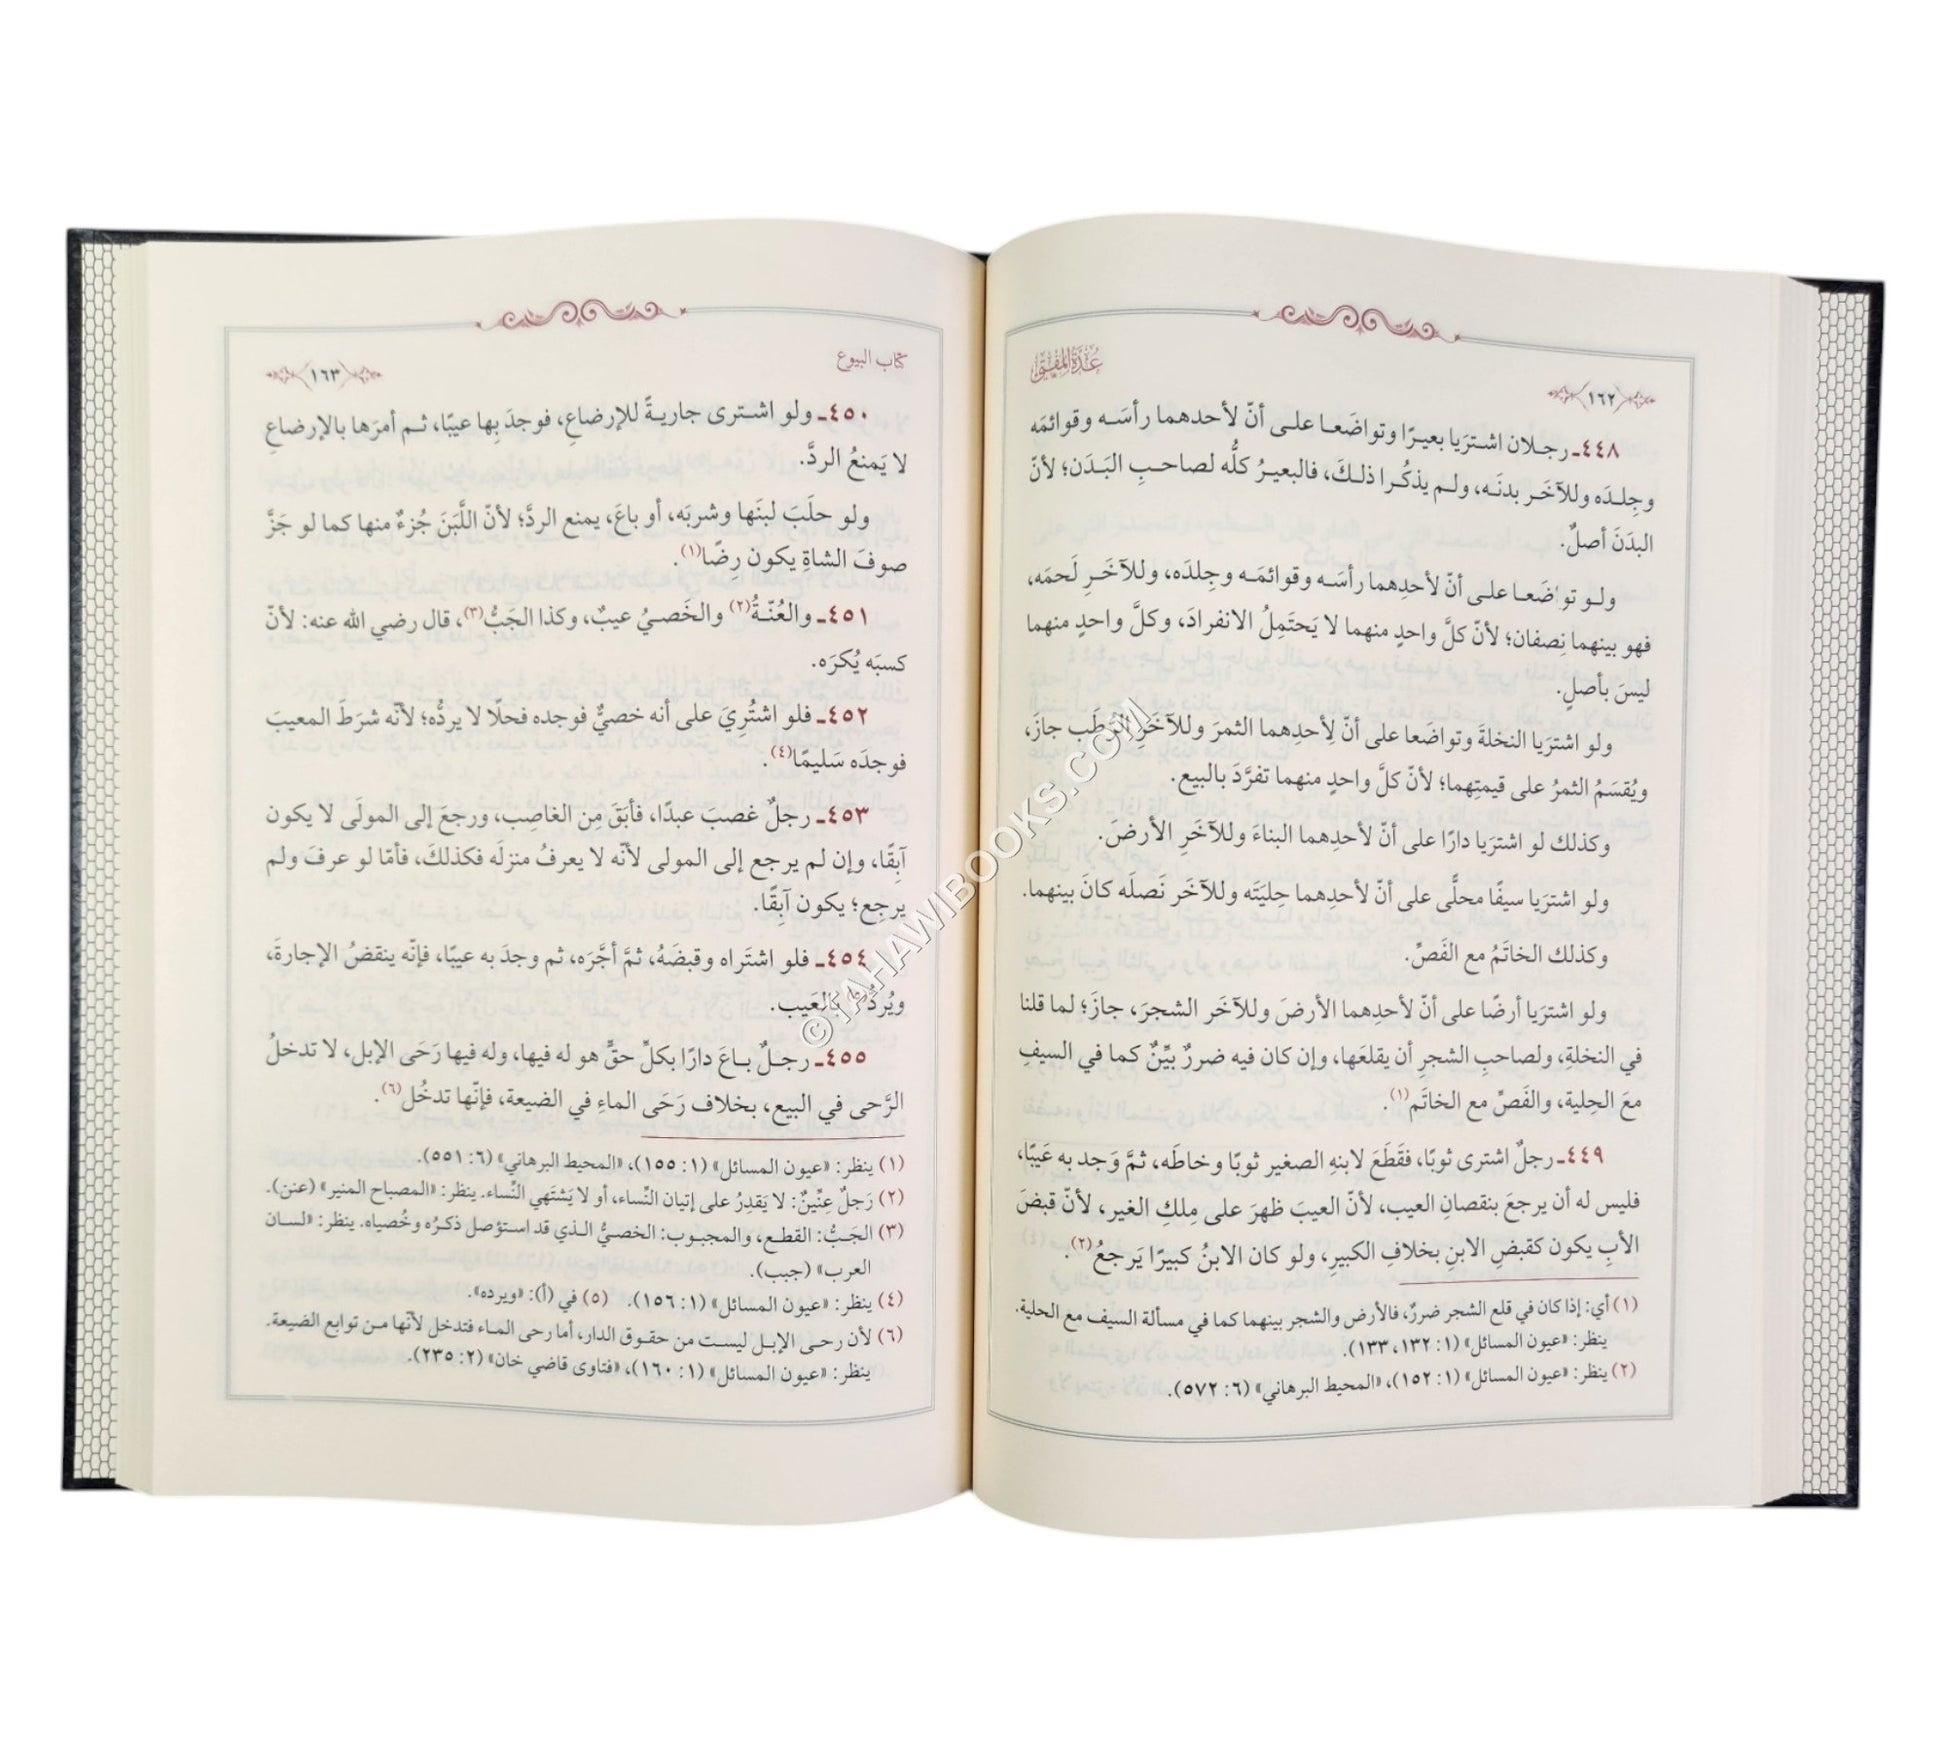 ١٦٢
عُمْدَةُ المُفْتِي
٤٤٨ـ رجلان اشترَيا بعيرًا وتواضَعا على أنّ لأحدهما رأسَه وقوائمَه
وجِلدَه وللآخَر بدنَه، ولم يذكُرا ذلكَ، فالبعيرُ كلُّه لصاحبِ البَدَن؛ لأنّ
البدَنَ أصلٌ.
ولو تواضَعا على أنّ لأحدِهما رأسَه وقوائمَه وجِلدَه، وللآخَرِ لَحمَه،
فهو بينهما نِصفان؛ لأنّ كلَّ واحدٍ منهما لا يَحتَمِلُ الانفرادَ، وكلَّ واحدٍ منهما
ليسَ بأصلٍ.
ولو اشترَيا النخلةَ وتواضَعا على أنّ لِأحدِهما الثمرَ وللآخَرِ الرُّطَب جازَ،
ويُقسَمُ الثمرُ على قيمتِهما؛ لأنّ كلَّ واحدٍ منهما تفرَّدَ بالبيع.
وكذلك لو اشترَيا دارًا على أنّ لأحدِهما البناءَ وللآخَرِ الأرضَ.
ولو اشترَيا سيفًا محلًّى على أنّ لأحدِهما حِليَتَه وللآخَر نَصلَه كانَ بينهما.
وكذلك الخاتَمُ مع الفَصِّ.
ولو اشترَيا أرضًا على أنّ لأحدِهما الأرضَ وللآخَر الشجرَ، جازَ؛ لما قلنا
في النخلةِ، ولصاحبِ الشجرِ أن يقلعَها، وإن كان فيه ضررٌ بيِّنٌ كما في السيفِ
معَ الحِلية، والفَصِّ مع الخاتَم(١).
٤٤٩ـ رجلٌ اشترى ثوبًا، فقَطَعَ لابنهِ الصغير ثوبًا وخاطَه، ثمَّ وَجد به عَيبًا،
فليس له أن يرجعَ بنقصانِ العيب، لأنّ العيبَ ظهرَ على مِلكِ الغير، لأنّ قبضَ
الأبِ يكون كقبضِ الابنِ بخلافِ الكبيرِ، ولو كان الابنُ كبيرًا يَرجعُ(٢).
(١) أي: إذا كان في قلع الشجر ضررٌ، فالأرض والشجر بينهما كما في مسألة السيف مع الحلية.
ينظر: «عيون المسائل» (١: ١٣٢، ١٣٣).
(٢) ينظر: «عيون المسائل» (١: ١٥٢)، «المحيط البرهاني» (٦: ٥٧٢).
كتاب البيوع
١٦٣
٤٥٠ـ ولو اشترى جاريةً للإرضاعِ، فوجدَ بِها عيبًا، ثم أمرَها بالإرضاعِ
لا يَمنعُ الردَّ.
ولو حلَبَ لبنَها وشربَه، أو باعَ، يمنع الردَّ؛ لأنّ اللَّبَنَ جُزءٌ منها كما لو جَزَّ
صوفَ الشاةِ يكون رِضًا(١).
٤٥١ـ والعُنّةُ(٢) والخَصيُ عيبٌ، وكذا الجَبُّ(٣)، قال رضي الله عنه: لأنّ
كسبَه يُكرَه.
٤٥٢ـ فلو اشتُرِيَ على أنه خصيٌّ فوجده فحلًا لا يردُّه؛ لأنّه شرَطَ المعيبَ
فوجدَه سَليمًا(٤).
٤٥٣ـ رجلٌ غصبَ عبدًا، فأبَقَ مِن الغاصِب، ورجعَ إلى المولَى لا يكون
آبِقًا، وإن لم يرجع إلى المولى لأنّه لا يعرفُ منزلَه فكذلكَ، فأمّا لو عرفَ ولم
يرجِع؛ يكون آبِقًا.
٤٥٤ـ فلو اشتَراه وقبضَهُ، ثمَّ أجَّرَه، ثم وجدَ به عيبًا، فإنّه ينقضُ الإجارةَ،
ويُردُّ بالعَيب.
٤٥٥ـ رجلٌ باعَ دارًا بكلِّ حقٍّ هو له فيها، وله فيها رَحَى الإبل، لا تدخلُ
الرَّحى في البيع، بخلاف رَحَى الماءِ في الضيعة، فإنّها تدخُل(٦).
(١) ينظر: «عيون المسائل» (١: ١٥٥)، «المحيط البرهاني» (٦: ٥٥١).
(٢) رَجلٌ عِنِّينٌ: لا يَقدِرُ على إتيان النِّساء، أو لا يَشتَهي النِّساء. ينظر: «المصباح المنير» (عنن).
(٣) الجَبُّ: القطع، والمجبوب: الخصيُّ الذي قد استؤصل ذكرُه وخُصياه. ينظر: «لسان
العرب» (جبب).
(٤) ينظر: «عيون المسائل» (١: ١٥٦). (٥) في (أ): «ويرده».
(٦) لأن رحى الإبل ليست من حقوق الدار، أما رحى الماء فتدخل لأنّها من توابع الضيعة.
ينظر: «عيون المسائل» (١: ١٦٠)، «فتاوى قاضي خان» (٢: ٢٣٥).
© TAHAWIBOOKS.COM